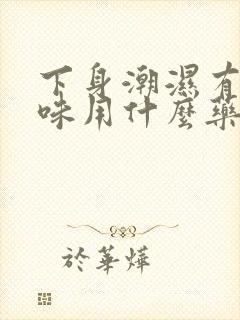 下身潮濕有
味用什麼藥
於華燁